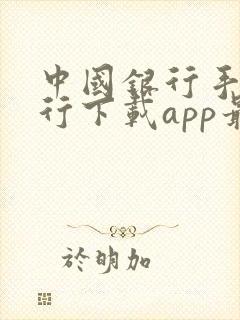 中國銀行手
行下載app最
於明加